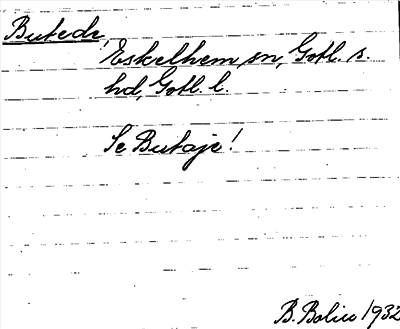 Butede,
Eskelhem sn, Gotl. s.
hd, Gotl. l.
Se Butaje!
B. Bolin 1932